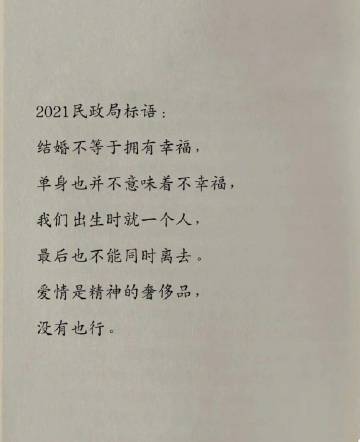 2021民政局标语：
结婚不等于拥有幸福，
单身也并不意味着不幸福，
我们出生时就一个人，
最后也不能同时离去。
爱情是精神的奢侈品，
没有也行。